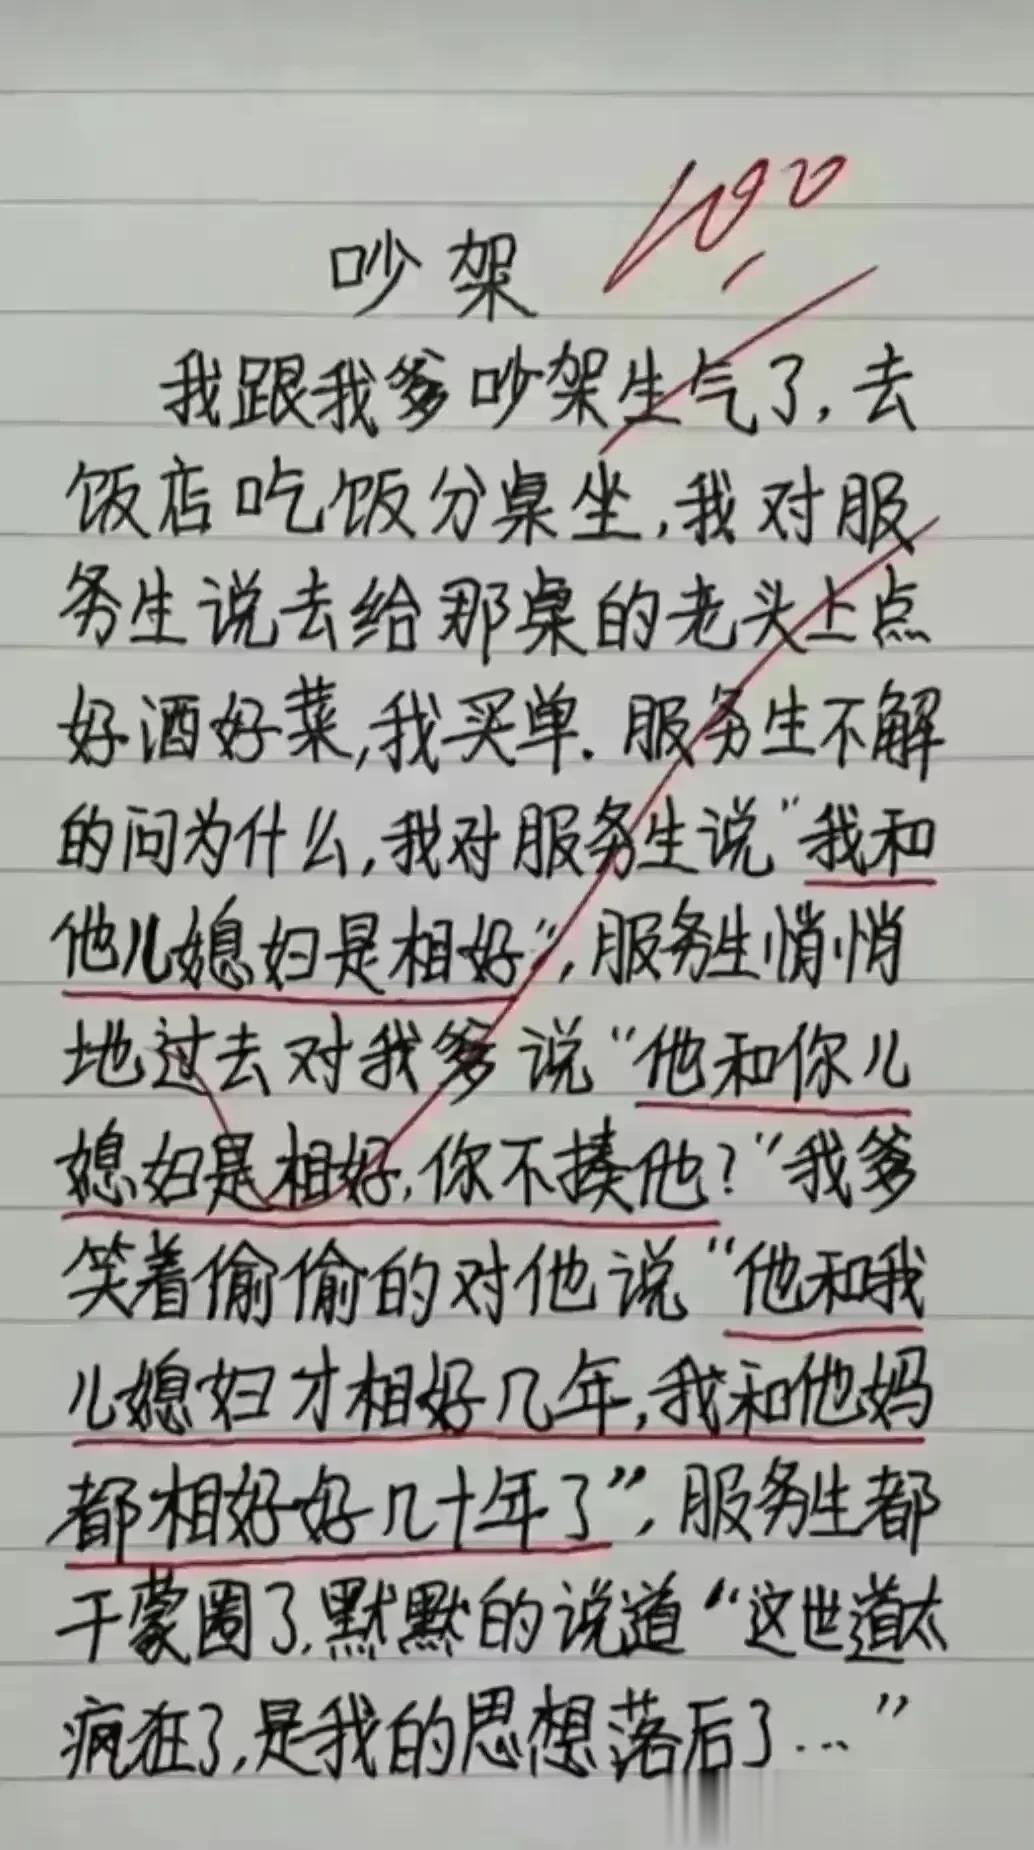 100
吵架
我跟我爹吵架生气了,去
饭店吃饭分桌坐,我对服
务生说去给那桌的老头上点
好酒好菜,我买单.服务生不解
的问为什么,我对服务生说"我和
他儿媳妇是相好",服务生悄悄
地过去对我爹说"他和你儿
媳妇是相好,你不揍他?"我爹
笑着偷偷的对他说"他和我
儿媳妇才相好几年,我和他妈
都相好好几十年了",服务生都
干蒙圈了.默默的说道"这世道太
疯狂了,是我的思想落后了..."